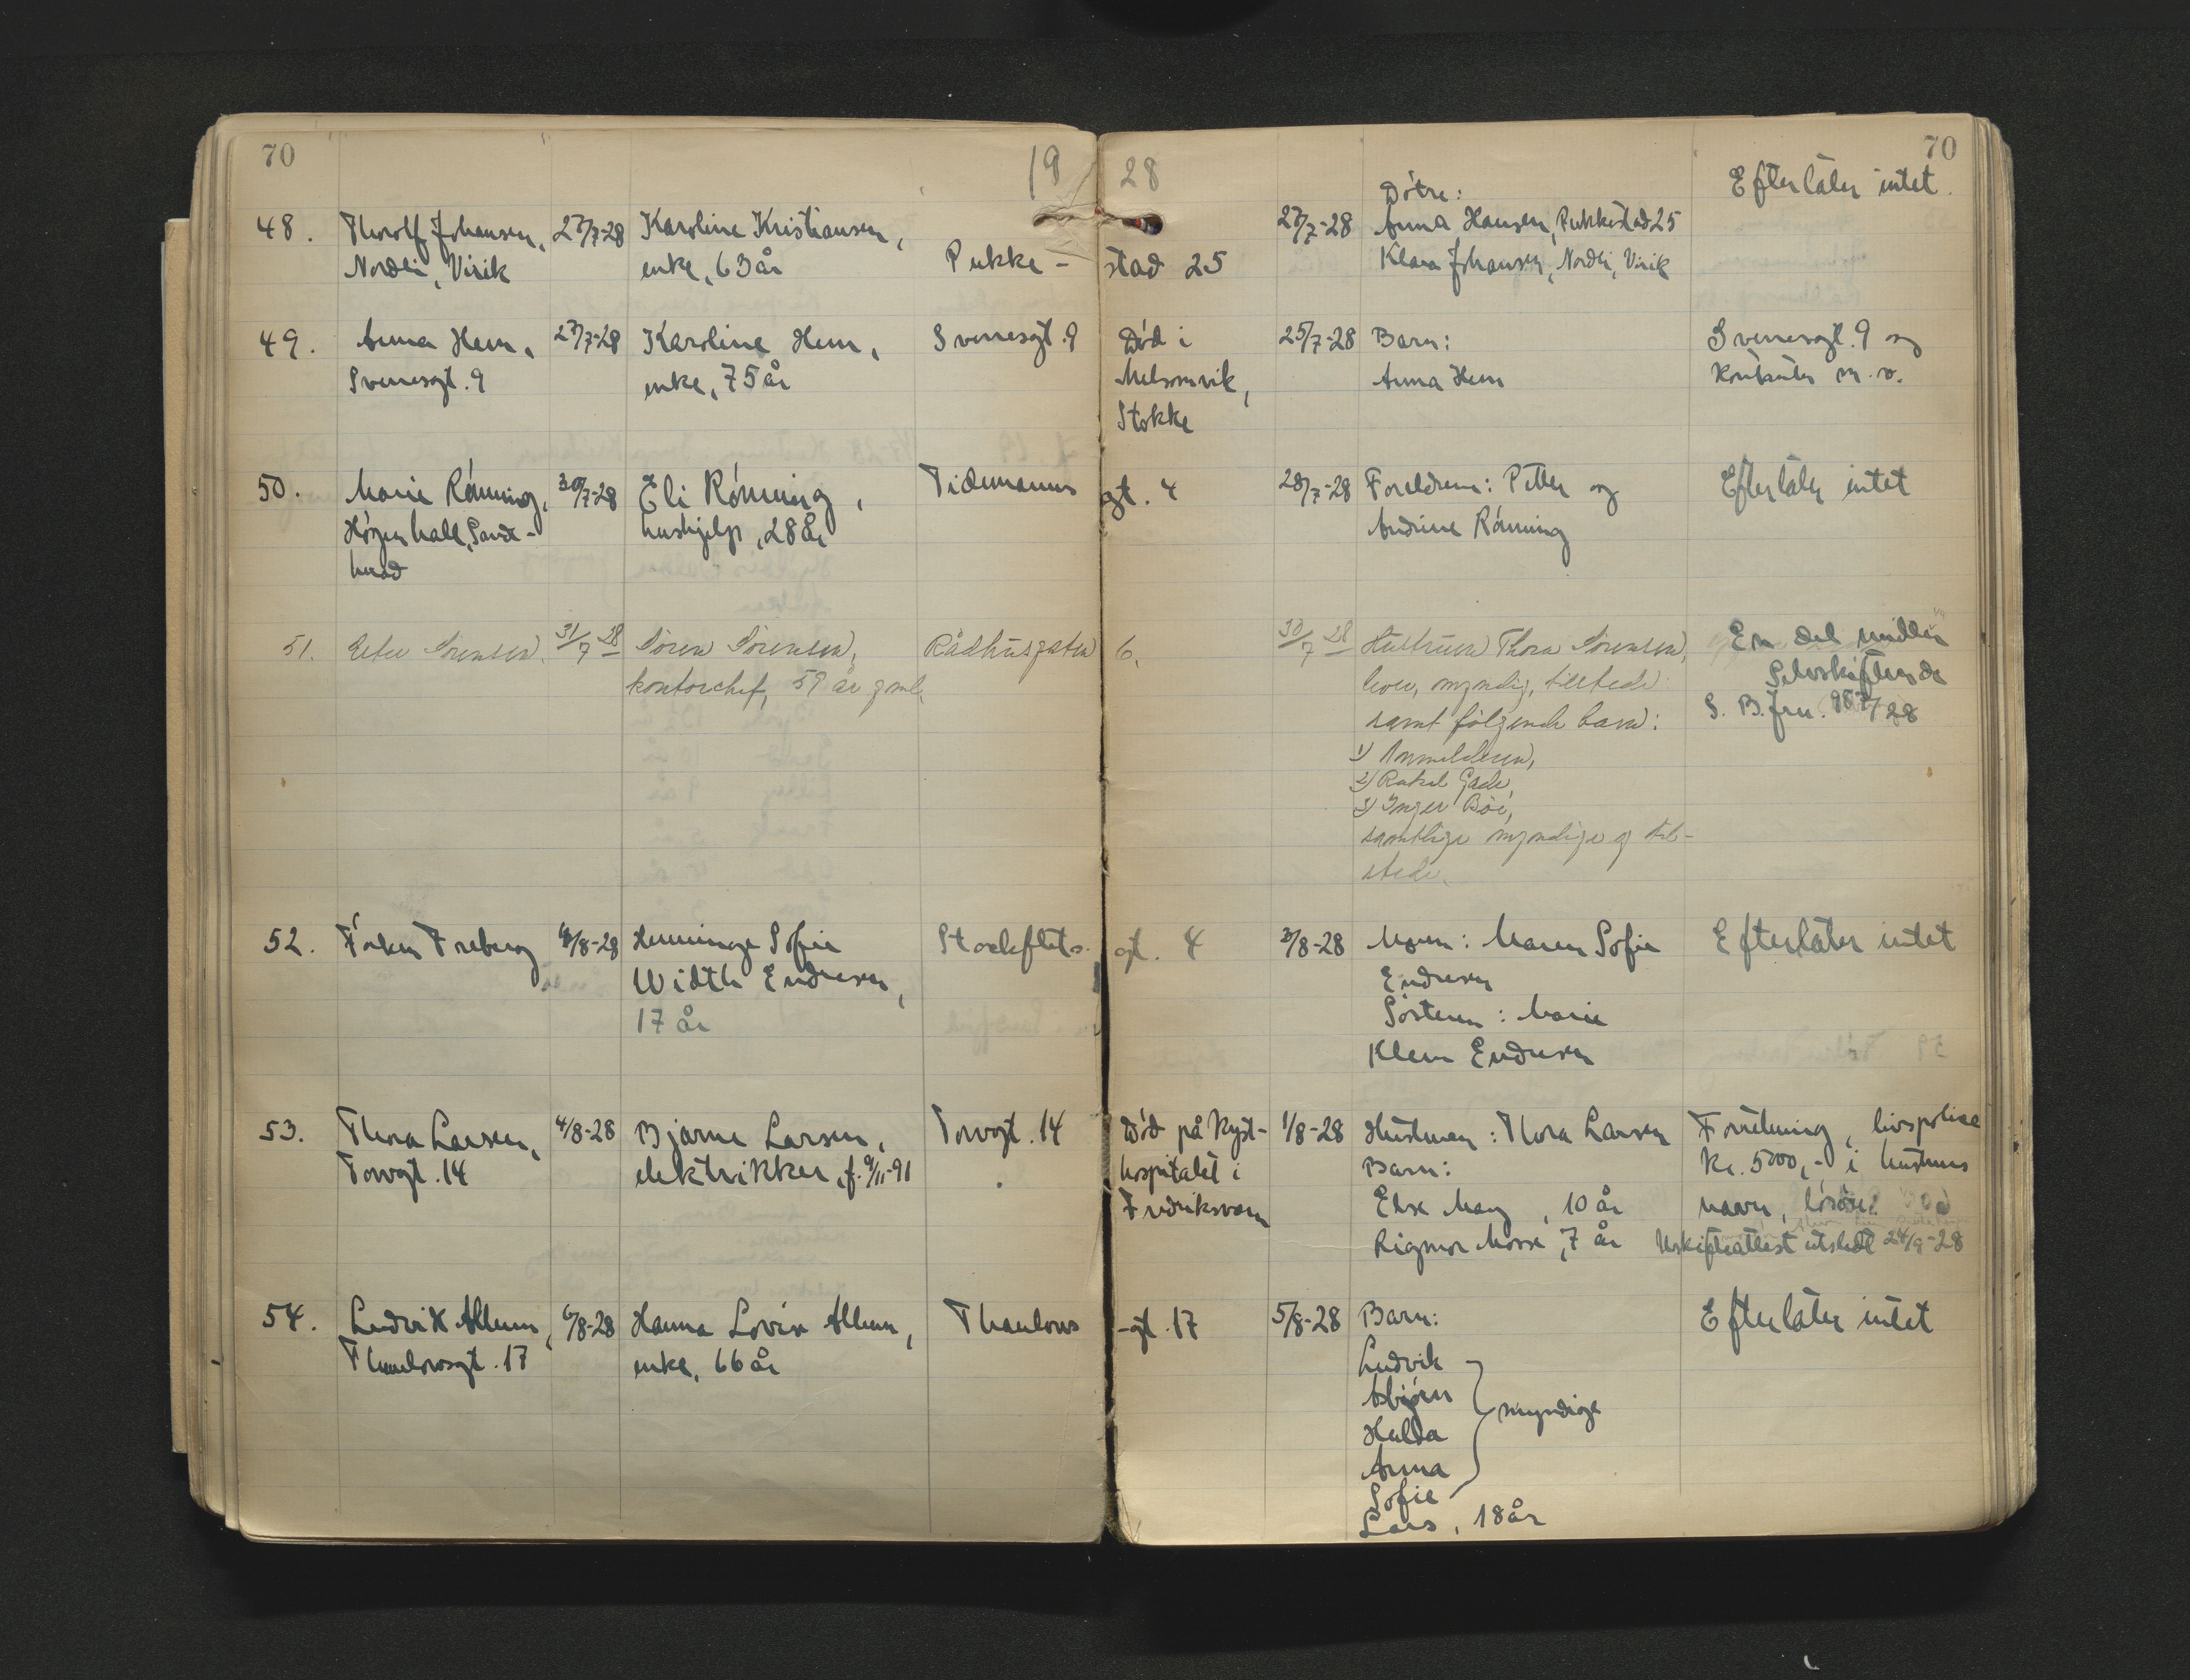 70
19 28
70
48.
Thorolf Johansen,
Nordli, Virik
27/7-28
Karoline Kristiansen,
enke, 63 år
Pukke-
stad 25
27/7-28
Døtre:
Anna Hansen, Pukkestad 25
Klara Johansen, Nordli, Virik
Efterlater intet.
49.
Anna Hem,
Sverresgt. 9
27/7-28
Karoline Hem,
enke, 75 år
Sverresgt. 9
Død i
Melsomvik,
Stokke
25/7-28
Barn:
Anna Hem
Sverresgt. 9 og
kontanter m.v.
50.
Marie Rønning,
Høgenhall, Sande-
herad
30/7-28
Eli Rønning,
hushjelp, 28 år
Tidemanns
gt. 4
28/7-28
Foreldrene: Petter og
Andrine Rønning
Efterlater intet
51.
Sørensen.
31/7 28
Søren Sørensen,
kontorchef, 59 år gml.
Rådhusgaten
6.
30/7 28
Hustruen Thora Sørensen,
lever, myndig, tilstede
samt følgende barn:
1) Anmelderen,
2) Rakel Gade,
3) Inger Bøe,
samtlige myndige og til-
stede.
En del midler
Selvskiftende
S. B. Jrn. 987/28
52.
Freberg
4/8-28
Henninge Sofie
Width Endresen,
17 år
Stockflets
gt. 4
3/8-28
Moren: Maren Sofie
Endresen
Søsteren: Marie
Klem Endresen
Efterlater intet
53.
Thora Larsen,
Torvgt. 14
4/8-28
Bjarne Larsen,
elektrikker, f. 9/11-91
Torvgt. 14
Død på Kyst-
hospitalet i
Fredriksvern
1/8-28
Hustruen: Thora Larsen
Barn:
Else May, 10 år
Rigmor Mosse, 7 år
Forretning, livspolise
kr. 5000,- i hustruens
navn, løsøre
Uskifteattest utstedt 24/9-28
54.
Ludvik Allum,
Thaulowsgt. 17
6/8-28
Hanna Lovise Allum,
enke, 66 år
Thaulows
-gt. 17
5/8-28
Barn:
Ludvik
Asbjørn
Hulda
Anna
Sofie
myndige
Lars, 18 år
Efterlater intet